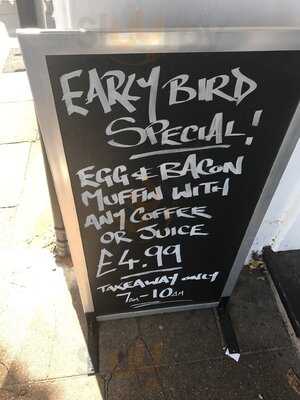 EARLY BIRD
SPECIAL!
EGG & BACON
MUFFIN WITH
ANY COFFEE
OR JUICE
£4.99
TAKEAWAY ONLY
7AM-10AM